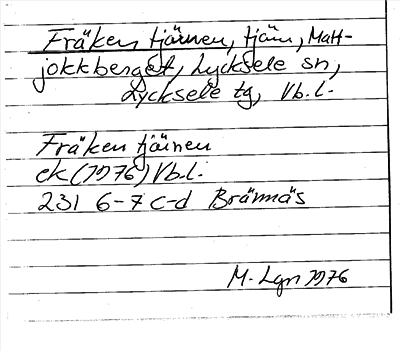 Fräken tjärnen, tjärn, Matt-
jokkberget, Lycksele sn,
Lycksele tg, Vb.l.
Fräken tjärnen
ek (1976) Vb.l.
231 6-7 c-d Brännäs
M. Lgn 1976